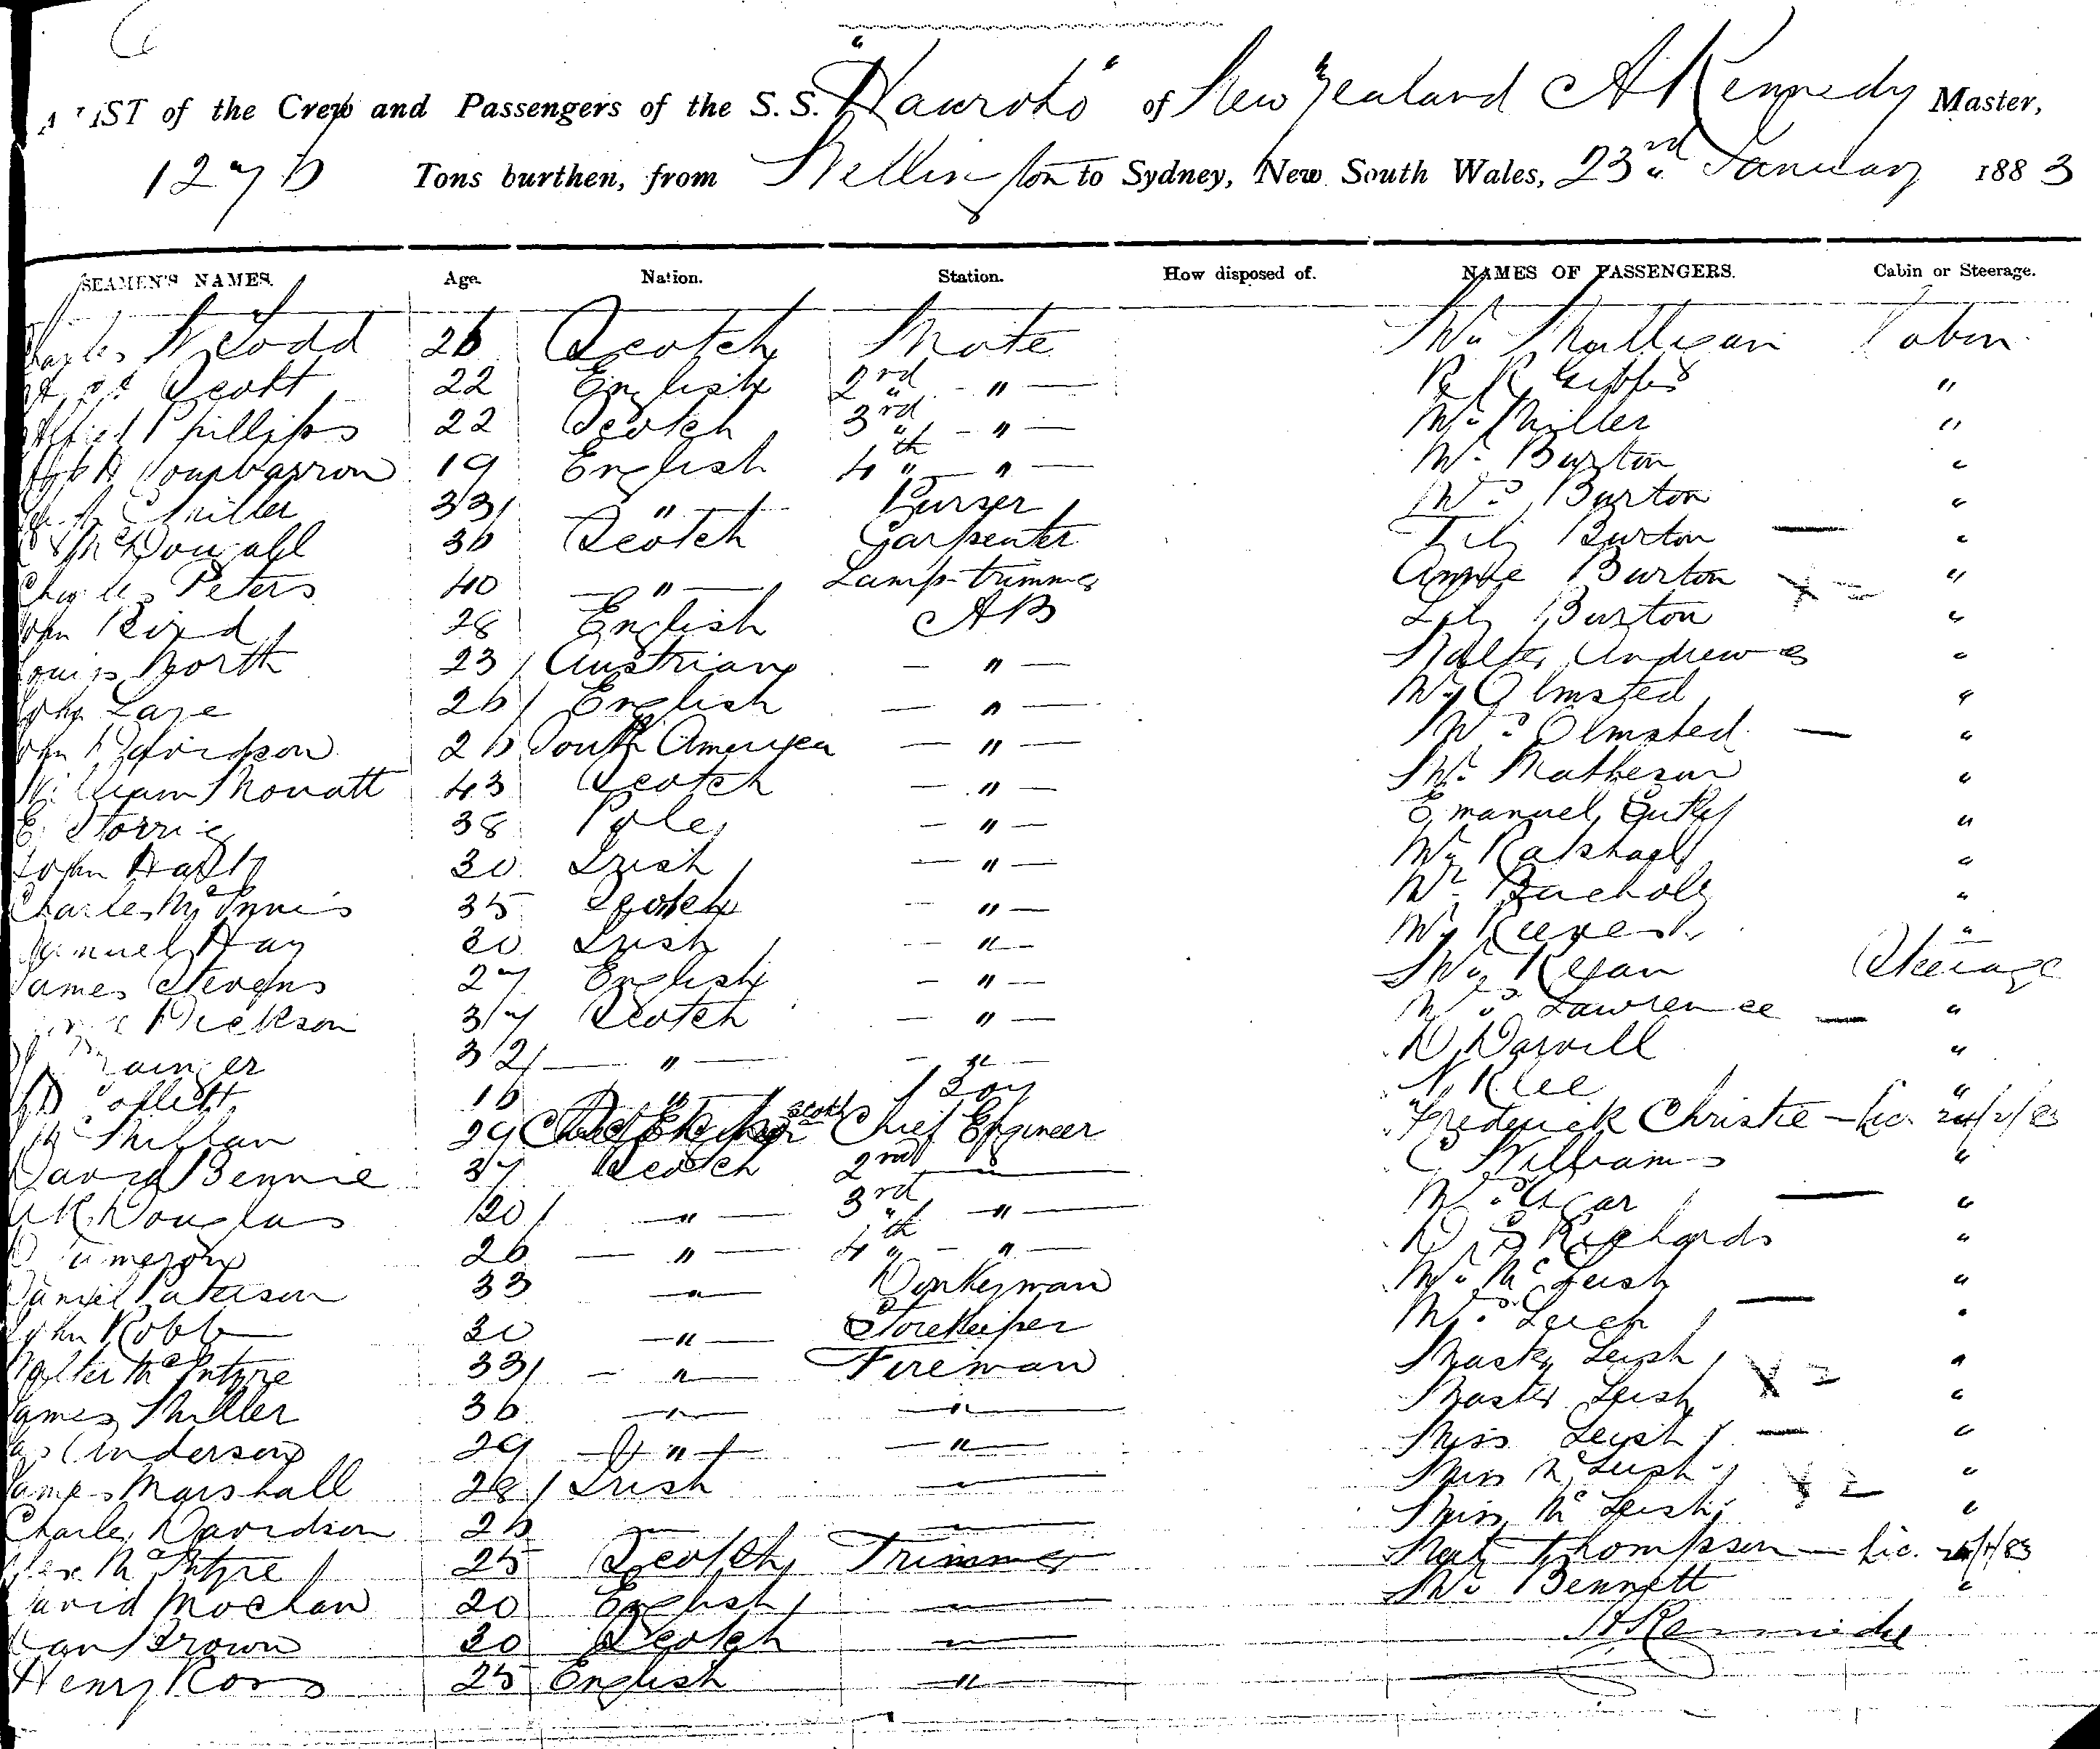 A LIST of the Crew and Passengers of the S.S. "Hauroto" of New Zealand A Kennedy Master,
1276 Tons burthen, from Wellington to Sydney, New South Wales, 23rd January 1883
SEAMEN'S NAMES. Age. Nation. Station. How disposed of. NAMES OF PASSENGERS. Cabin or Steerage.
Charles W Todd 26 Scotch Mate Mr Mulligan Cabin
Scott 22 English 2nd " R R Gibbs "
Alfred Phillips 22 Scotch 3rd " Mr Miller "
19 English 4th " Mr Burton "
Miller 33 " Purser Mrs Burton "
McDougall 36 Scotch Carpenter Burton "
Charles Peters 40 " Lamp-trimmer Annie Burton "
John Bird 28 English AB Lily Burton "
Louis North 23 Austrian " Walter Andrews "
John Lane 26 English " Mr Olmsted "
John Davidson 26 South American " Mrs Olmsted "
William Mouatt 43 Scotch " Mr Matheson "
E. Storrie 38 Pole " Emanuel "
John Hall 30 Irish " Mr Raphael "
Charles McInnis 35 Scotch " Mr Bucholz "
Samuel Hay 30 Irish " Mr Reeves "
James Stevens 27 English " Mr Regan Steerage
Dickson 37 Scotch " Mrs Lawrence "
Grainger 32 " " D Darvill "
16 " Boy N. Klee "
29 Scotch Chief Engineer Frederick Christie - Lic.
David Bennie 37 Scotch 2nd " C Williams "
A K Douglas 20 " 3rd " Mrs Agar "
D Cameron 26 " 4th " D S Richards "
Daniel Paterson 33 " Donkeyman Mr McLeish "
John Robb 30 " Storekeeper Mrs Leish "
Walter McIntyre 33 " Fireman Master Leish "
James Miller 36 " " Master Leish "
Jas Anderson 29 " " Miss Leish "
James Marshall 28 Irish " Miss McLeish "
Charles Davidson 26 " " Miss McLeish "
Alex McIntyre 25 Scotch Trimmer Thompson - Lic.
David Mochan 20 English " Mr Bennett "
Dan Brown 30 Scotch " A Kennedy
Henry Ross 25 English "